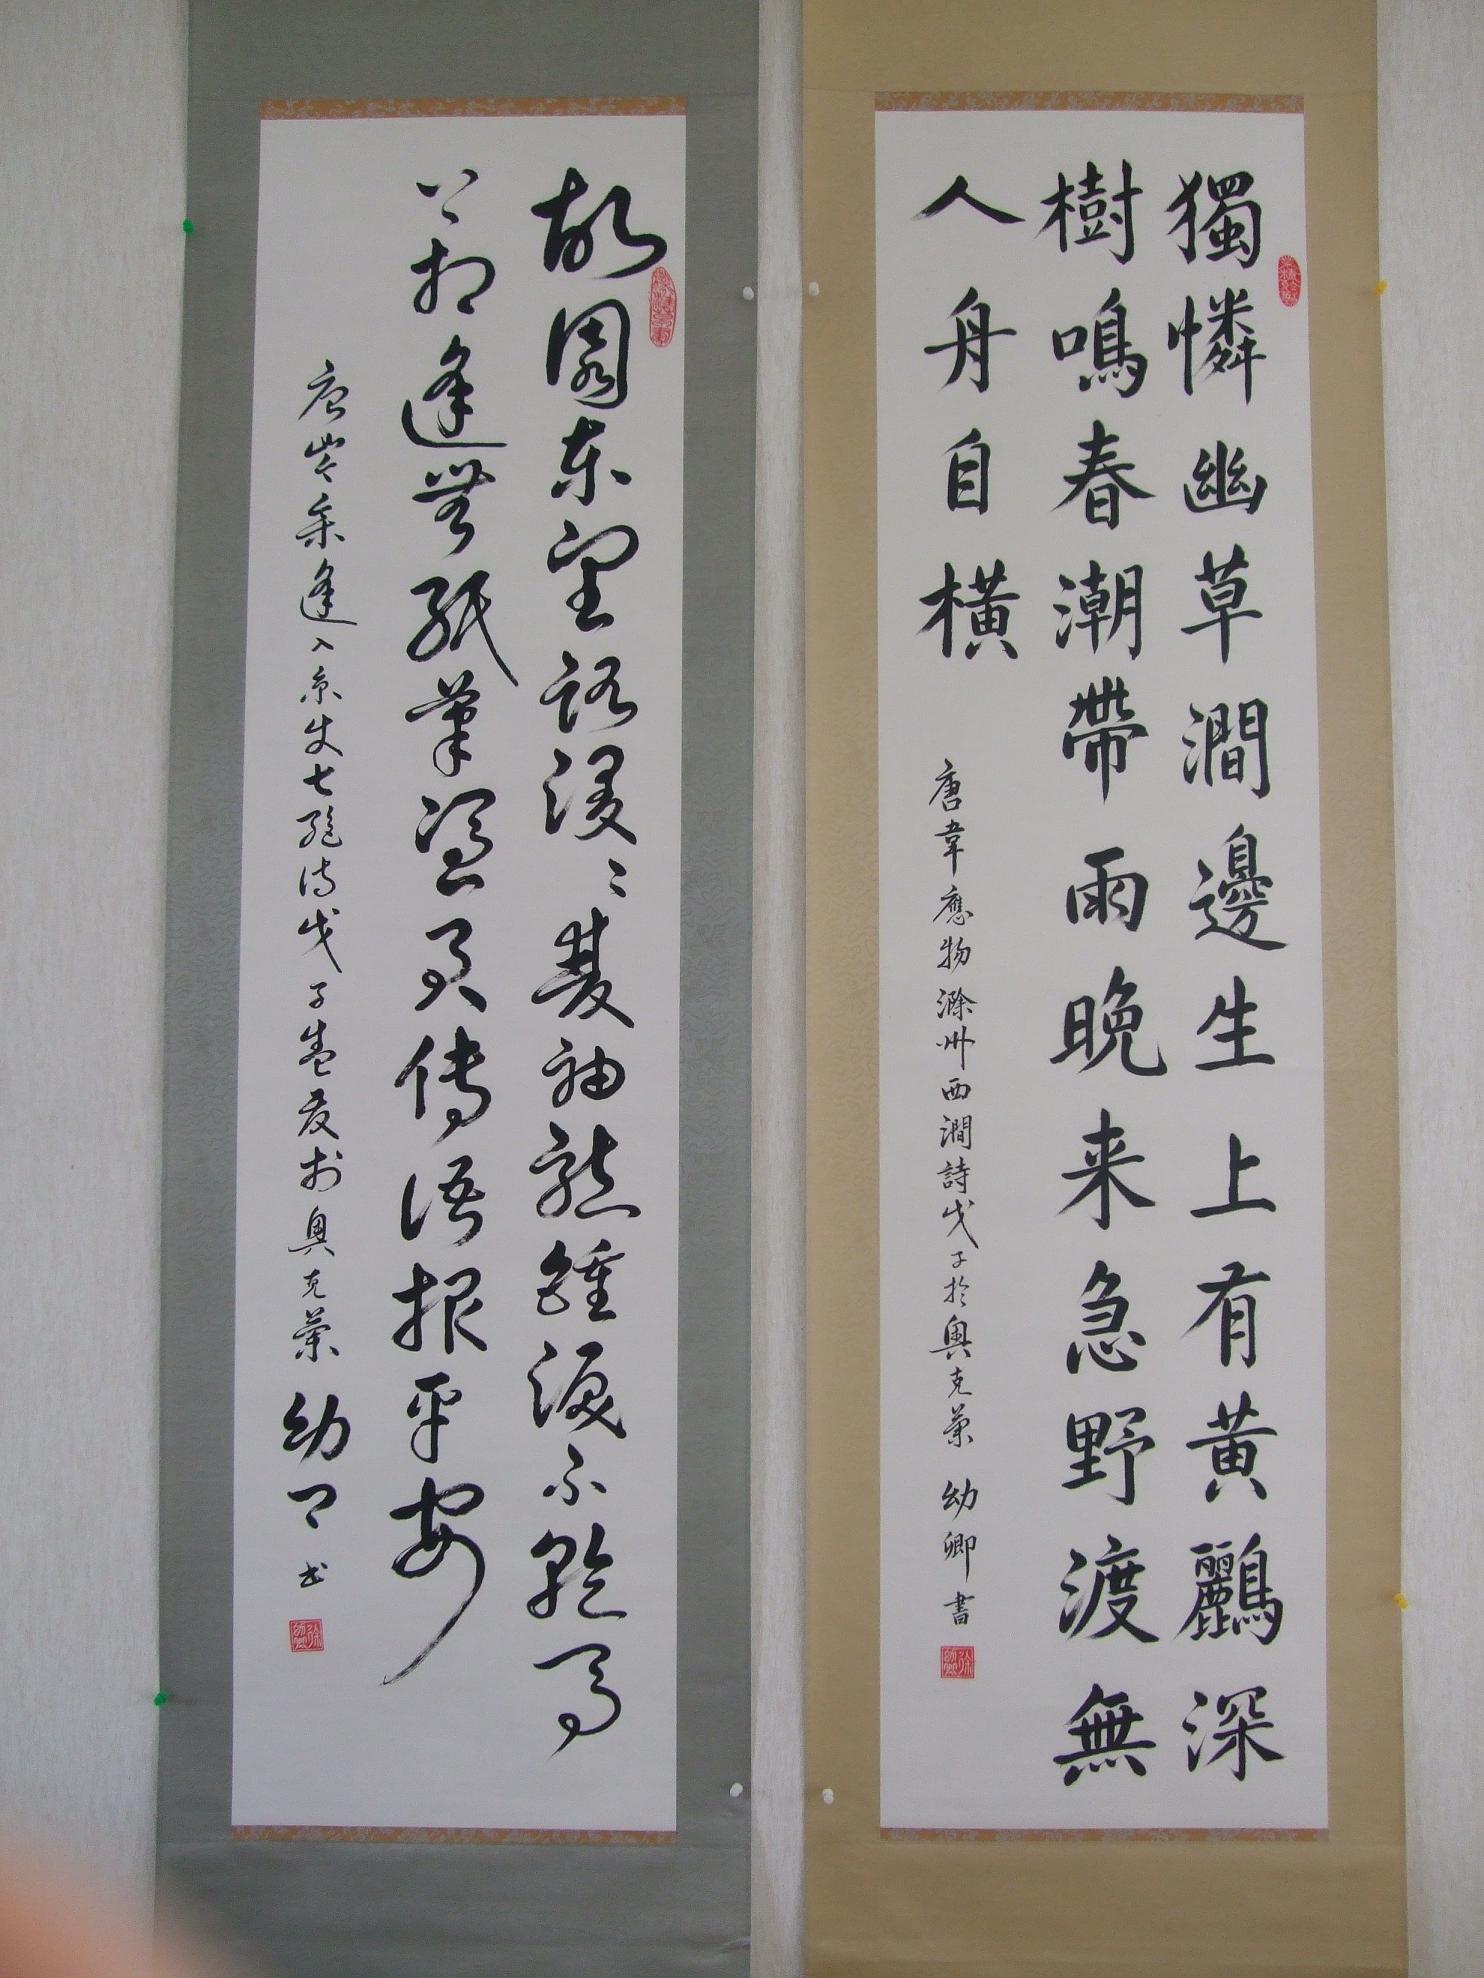 獨憐幽草澗邊生上有黃鸝深
樹鳴春潮帶雨晚来急野渡無
人舟自橫
唐韋應物滁州西澗詩戊子於奧克蘭 幼卿書
故園東望路漫〻雙袖龍鍾淚不乾馬
上相逢無紙筆憑君傳語報平安
唐岑參逢入京使七絕詩戊子春夜於奧克蘭 幼卿书